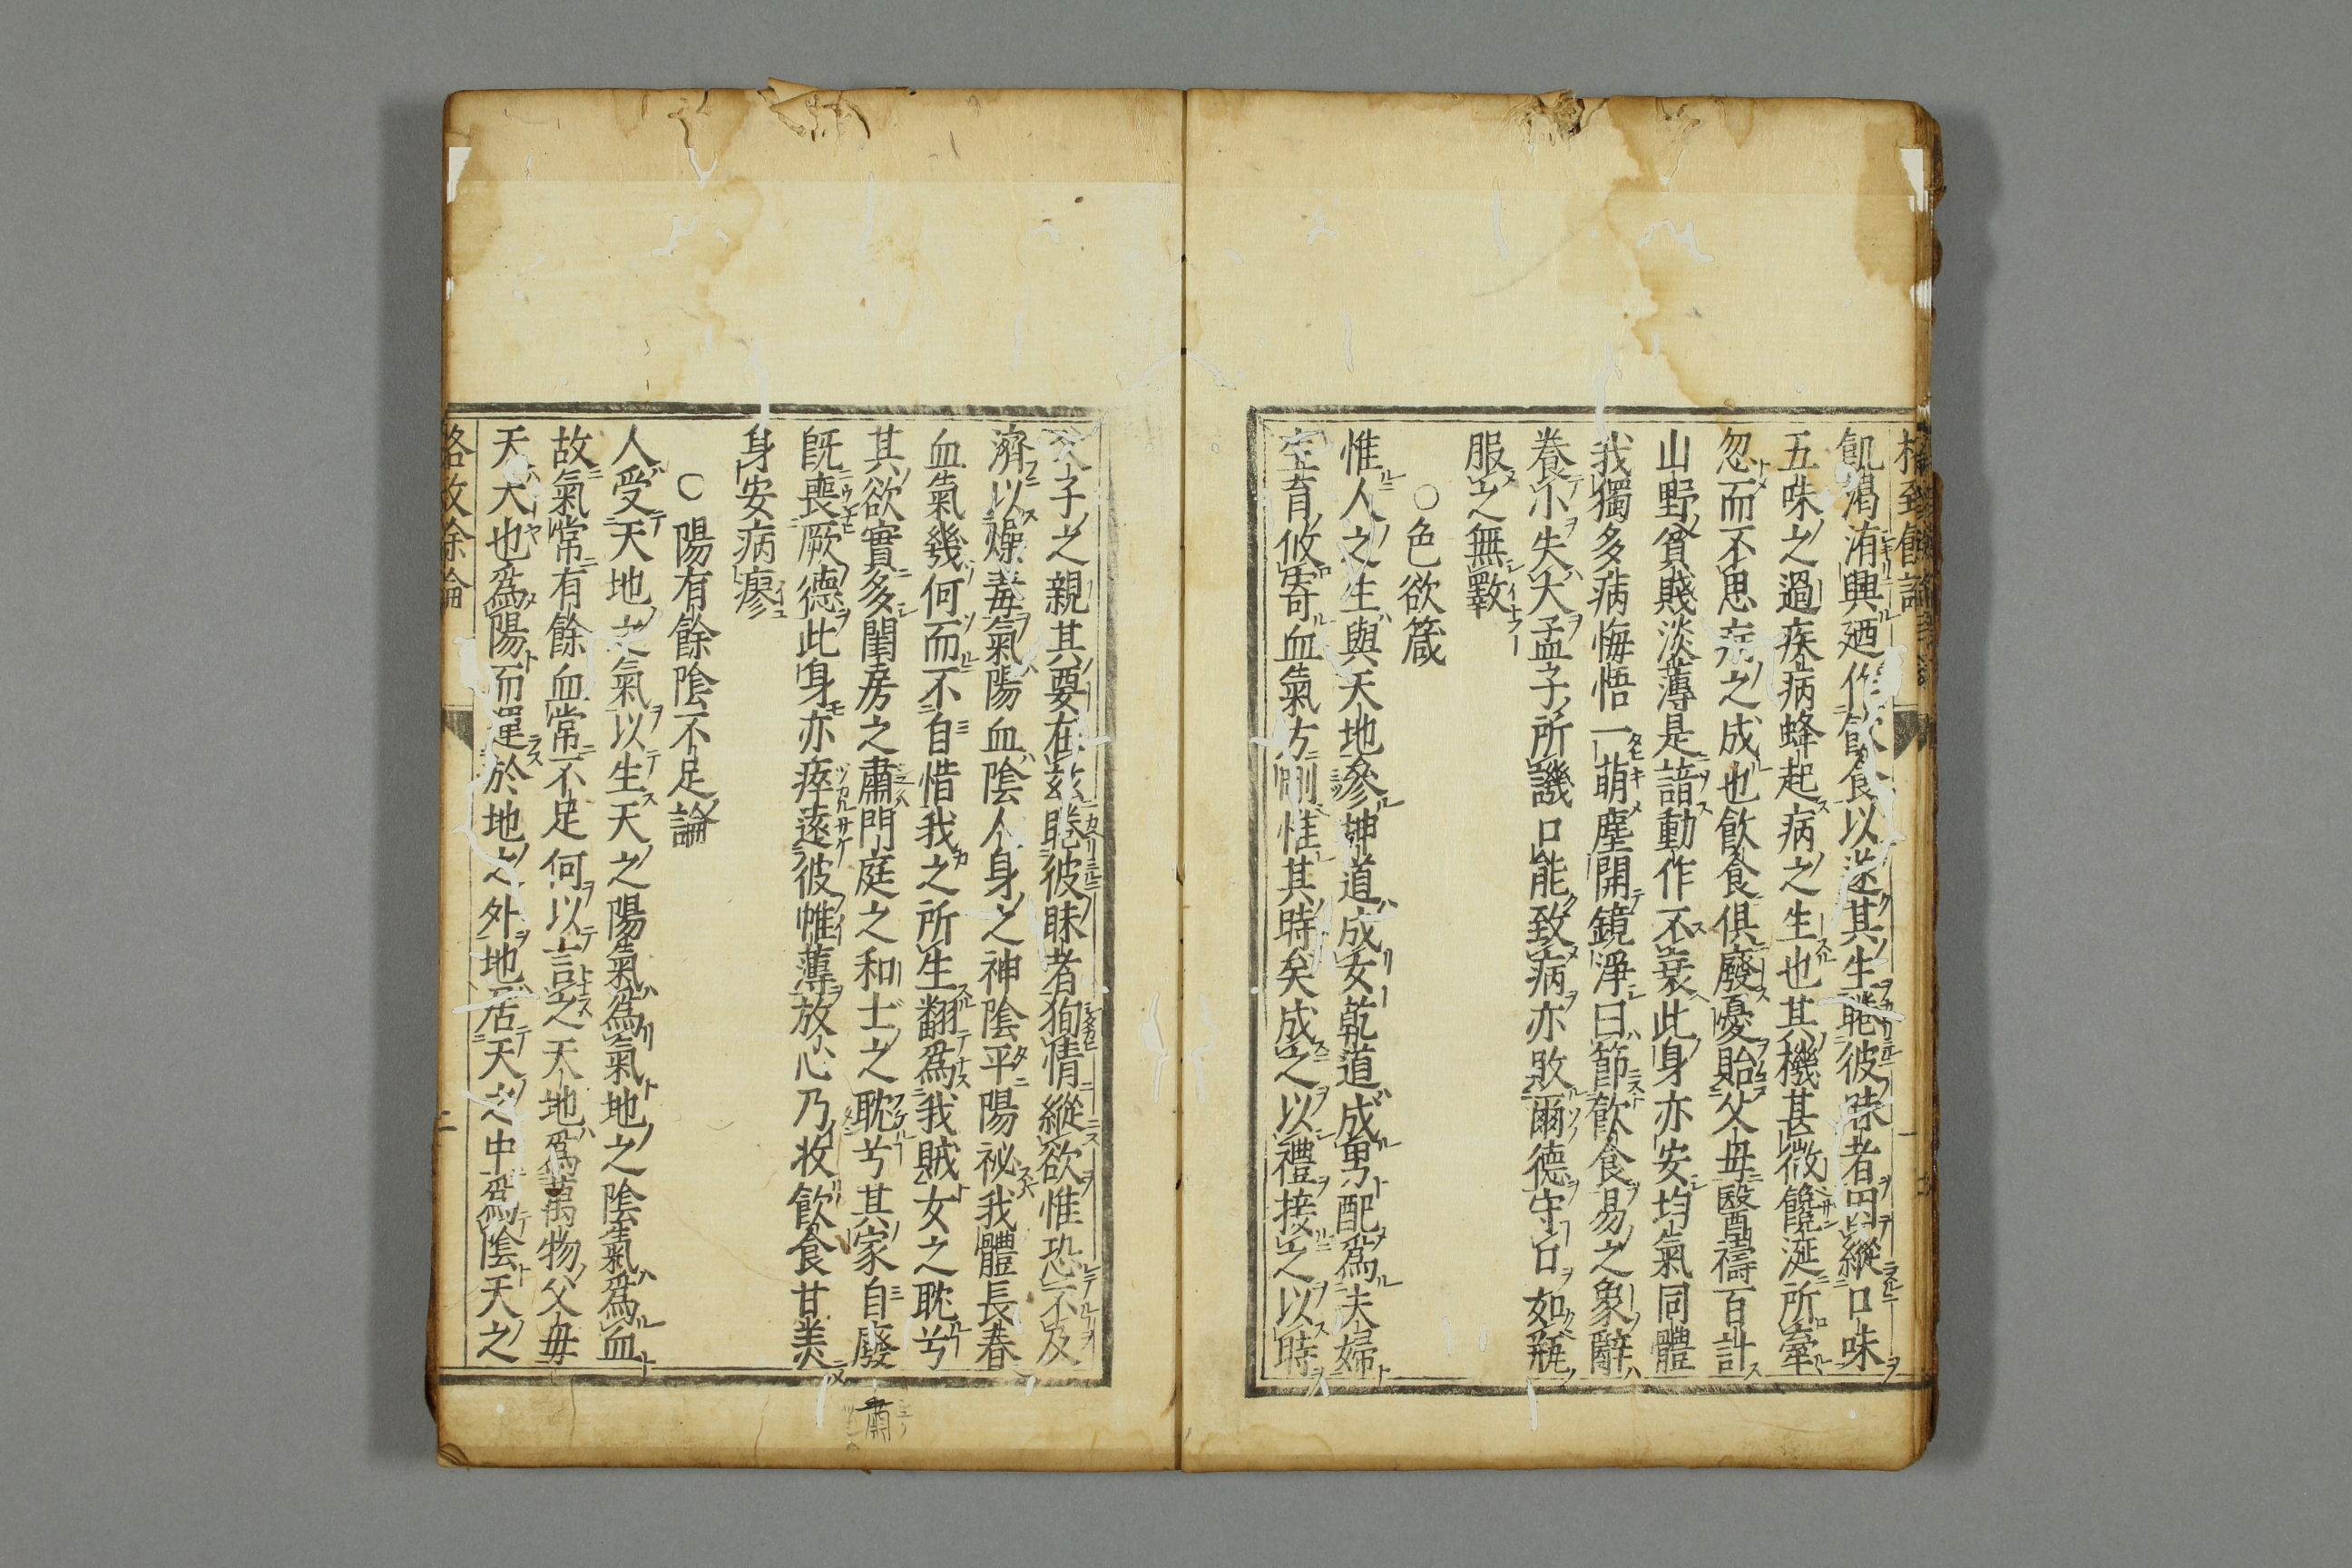 飢渴洧興廼作飲食以遂其生眷彼昧者因縱口味
五味之過疾病蜂起病之生也其機甚微饞涎所牽
忽而不思病之成也飲食俱廢憂貽父母醫禱百計
山野貧賤淡薄是諳動作不衰此身亦安均氣同體
我獨多病悔悟一萌塵開鏡淨曰節飲食易之象辭
養小失大孟子所譏口能致病亦敗爾德守口如瓶
服之無斁
○色欲箴
惟人之生與天地參坤道成女乾道成男配爲夫婦
生育攸寄血氣方剛惟其時矣成之以禮接之以時
父子之親其要在玆眷彼昧者狥情縱欲惟恐不及
濟以燥毒氣陽血陰人身之神陰平陽祕我體長春
血氣幾何而不自惜我之所生翻爲我賊女之耽兮
其欲實多閨房之肅門庭之和士之耽兮其家自廢
旣喪厥德此身亦瘁遠彼帷薄放心乃收飲食甘美
身安病瘳
○陽有餘陰不足論
人受天地之氣以生天之陽氣爲氣地之陰氣爲血
故氣常有餘血常不足何以言之天地爲萬物父母
天大也爲陽而運於地之外地居天之中爲陰天之
格致餘論
二
肅